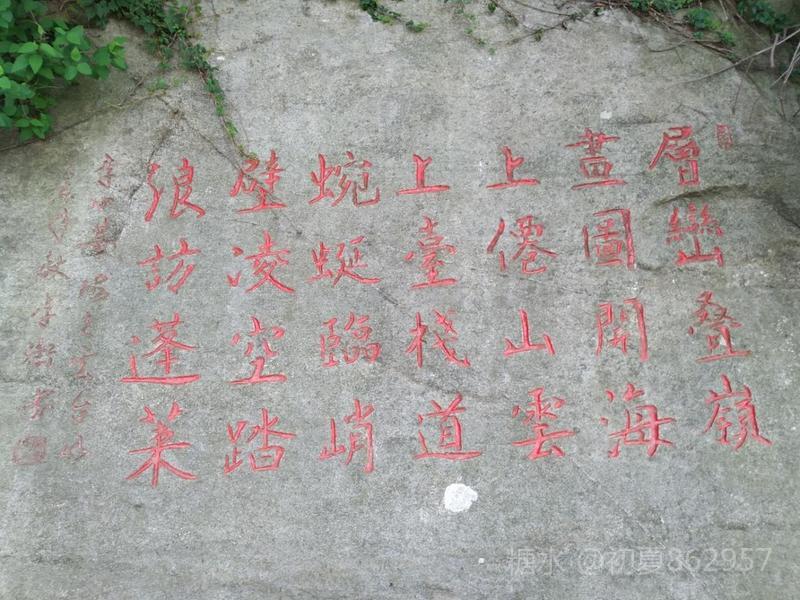 層巒叠嶺
畫圖開海
上僊山雲
上臺棧道
蜿蜒臨峭
壁凌空踏
浪訪蓬萊
搪水 @初夏862957